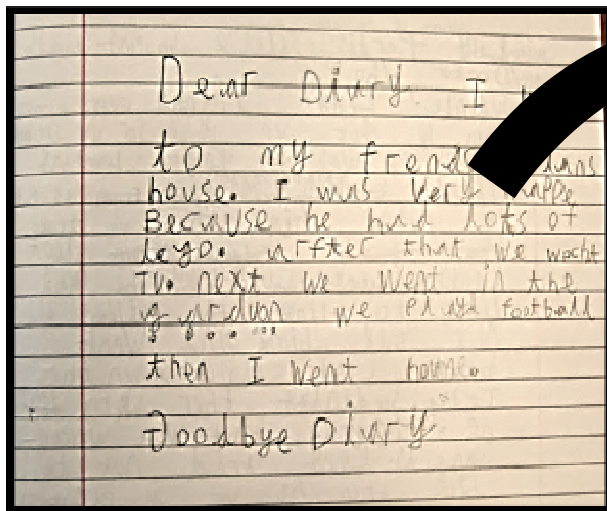 Dear Diary. I
to my frend
house. I was very happe
Because he had lots of
lego. arfter that we wacht
TV. next we went in the
garduan we playd football
then I went home.
Goodbye Diary